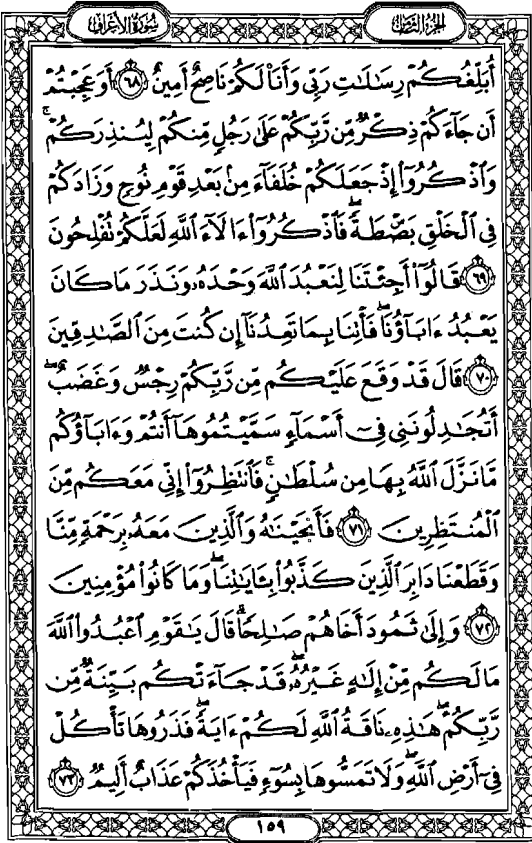 سُورَةُ الأَعْرَافِ
الجُزْءُ الثَّامِنُ
أُبَلِّغُكُمْ رِسَٰلَٰتِ رَبِّي وَأَنَا۠ لَكُمْ نَاصِحٌ أَمِينٌ ۝٦٨ أَوَعَجِبْتُمْ
أَن جَآءَكُمْ ذِكْرٌ مِّن رَّبِّكُمْ عَلَىٰ رَجُلٍ مِّنكُمْ لِيُنذِرَكُمْ ۚ
وَٱذْكُرُوٓا۟ إِذْ جَعَلَكُمْ خُلَفَآءَ مِنۢ بَعْدِ قَوْمِ نُوحٍ وَزَادَكُمْ
فِى ٱلْخَلْقِ بَصْۜطَةً ۖ فَٱذْكُرُوٓا۟ ءَالَآءَ ٱللَّهِ لَعَلَّكُمْ تُفْلِحُونَ
۝٦٩ قَالُوٓا۟ أَجِئْتَنَا لِنَعْبُدَ ٱللَّهَ وَحْدَهُۥ وَنَذَرَ مَا كَانَ
يَعْبُدُ ءَابَآؤُنَا ۖ فَأْتِنَا بِمَا تَعِدُنَآ إِن كُنتَ مِنَ ٱلصَّٰدِقِينَ
۝٧٠ قَالَ قَدْ وَقَعَ عَلَيْكُم مِّن رَّبِّكُمْ رِجْسٌ وَغَضَبٌ ۖ
أَتُجَٰدِلُونَنِى فِىٓ أَسْمَآءٍ سَمَّيْتُمُوهَآ أَنتُمْ وَءَابَآؤُكُم
مَّا نَزَّلَ ٱللَّهُ بِهَا مِن سُلْطَٰنٍ ۚ فَٱنتَظِرُوٓا۟ إِنِّى مَعَكُم مِّنَ
ٱلْمُنتَظِرِينَ ۝٧١ فَأَنجَيْنَٰهُ وَٱلَّذِينَ مَعَهُۥ بِرَحْمَةٍ مِّنَّا
وَقَطَعْنَا دَابِرَ ٱلَّذِينَ كَذَّبُوا۟ بِـَٔايَٰتِنَا ۖ وَمَا كَانُوا۟ مُؤْمِنِينَ
۝٧٢ وَإِلَىٰ ثَمُودَ أَخَاهُمْ صَٰلِحًا ۗ قَالَ يَٰقَوْمِ ٱعْبُدُوا۟ ٱللَّهَ
مَا لَكُم مِّنْ إِلَٰهٍ غَيْرُهُۥ ۖ قَدْ جَآءَتْكُم بَيِّنَةٌ مِّن
رَّبِّكُمْ ۖ هَٰذِهِۦ نَاقَةُ ٱللَّهِ لَكُمْ ءَايَةً ۖ فَذَرُوهَا تَأْكُلْ
فِىٓ أَرْضِ ٱللَّهِ ۖ وَلَا تَمَسُّوهَا بِسُوٓءٍ فَيَأْخُذَكُمْ عَذَابٌ أَلِيمٌ ۝٧٣
١٥٩